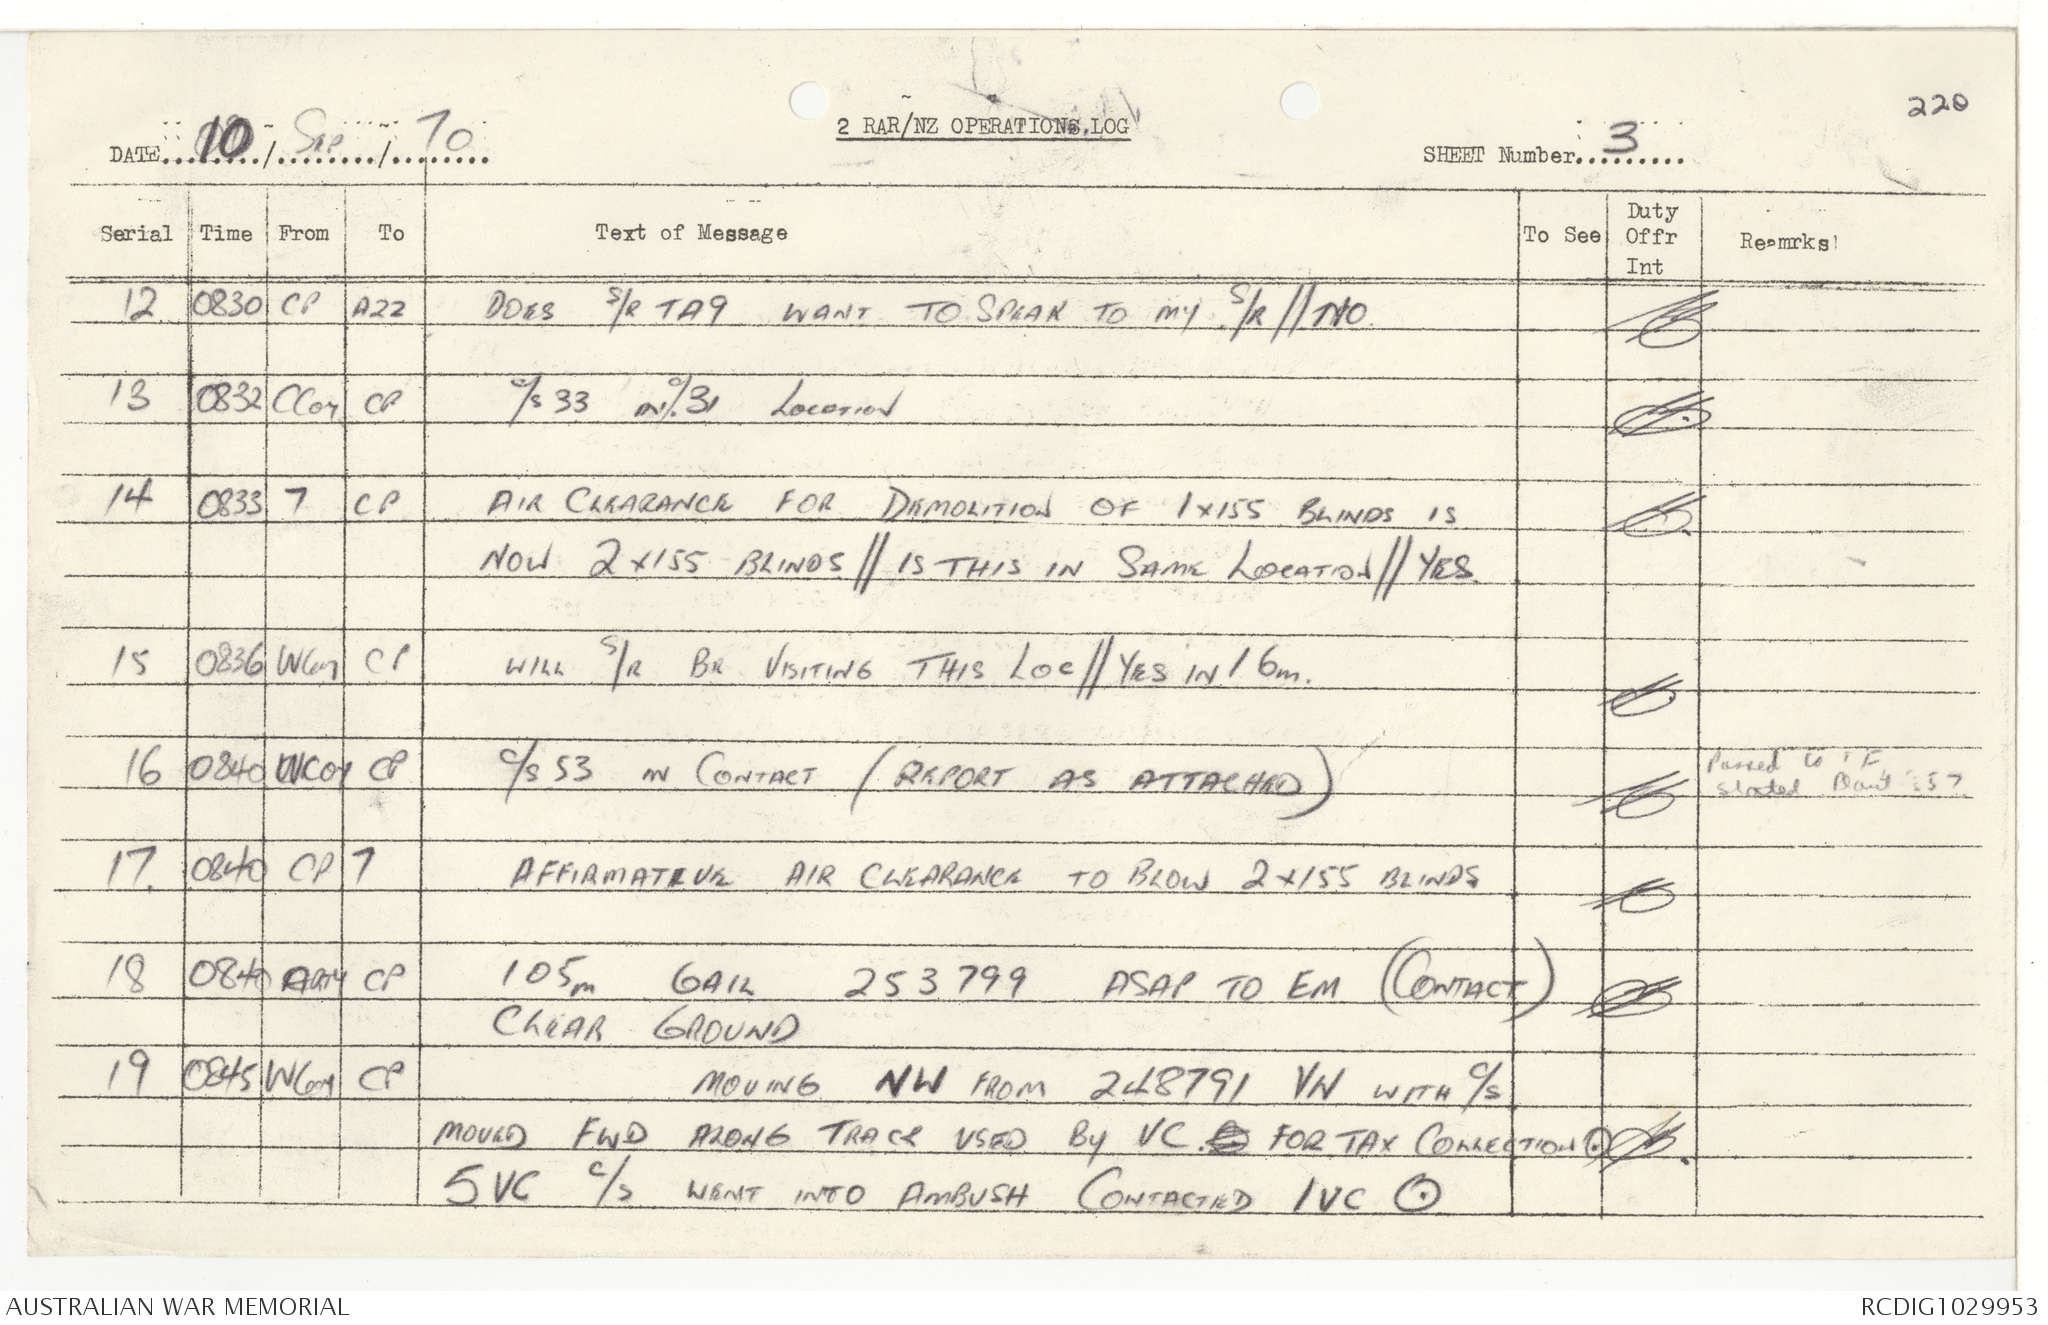 220
2 RAR/NZ OPERATIONS LOG
DATE 10 / Sep / 70
SHEET Number 3
Serial Time From To Text of Message To See Duty Offr Int Reamrks
12 0830 CP A22 DOES S/R TA9 WANT TO SPEAK TO MY S/R // NO
13 0832 CCoy CP C/S 33 IN 31 LOCATION
14 0833 7 CP AIR CLEARANCE FOR DEMOLITION OF 1x155 BLINDS IS
NOW 2x155 BLINDS // IS THIS IN SAME LOCATION // YES
15 0836 WCoy CP WILL S/R BE VISITING THIS LOC // YES IN 16m.
16 0840 WCoy CP C/S 53 IN CONTACT (REPORT AS ATTACHED) Passed to TF
started 57
17 0840 CP 7 AFFIRMATIVE AIR CLEARANCE TO BLOW 2x155 BLINDS
18 0840 ARTY CP 105m GAIL 253799 ASAP TO EM (CONTACT)
CLEAR GROUND
19 0845 WCoy CP MOVING NW FROM 248791 VN WITH C/S
MOVED FWD ALONG TRACK USED BY VC FOR TAX COLLECTION ⊙
5 VC C/S WENT INTO AMBUSH CONTACTED 1 VC ⊙
AUSTRALIAN WAR MEMORIAL
RCDIG1029953